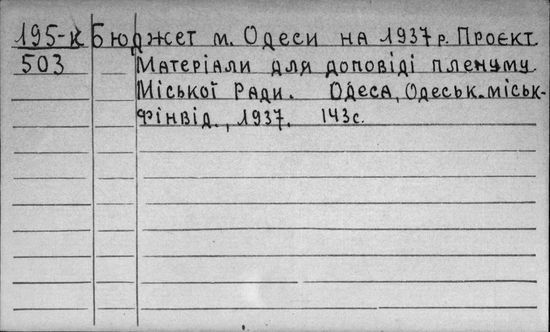 195-к Бюджет м. Одеси на 1937 р. Проєкт.
503 Матеріали для доповіді пленуму
Міської Ради. Одеса, Одеськ. міськ-
фінвід., 1937. 143 с.